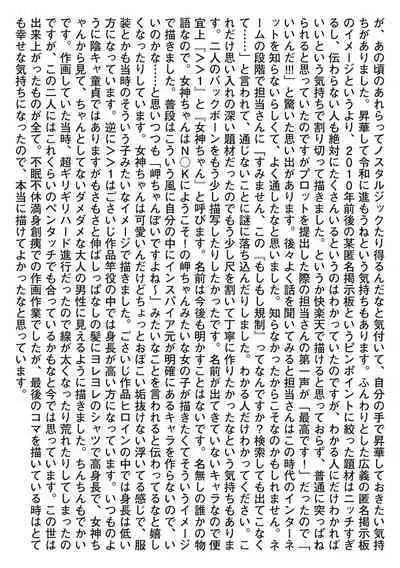 が、あの頃のあれらってノスタルジックたり得るんだなと気付いて、自分の手で昇華しておきたい気持
ちがありました。昇華して令和に進もうねという気持ちもあります。ふんわりとした広義の匿名掲示板
のイメージというより、2010年前後の某匿名掲示板というピンポイントに絞った題材はニッチすぎ
るし、伝わらない人も絶対にたくさんいるというのはわかっていたのですが、わかる人にだけわかれば
いいという気持ちで割り切って描きました。というか快楽天で描けると思っておらず、普通に突っぱね
られると思っていたのですがプロットを提出した際の担当さんの第一声が「最高です！」だったので「
いいんだ!!!」と驚いた思い出があります。後々よく話を聞いてみると担当さんはこの時代のインターネ
ットを知らないらしくて、よく通したなと思いました。知らなかったからこそなのかもしれません。ネ
ームの段階で担当さんに「すみません、この『もしもし規制』ってなんですか?検索しても出てこなく
て……」と言われて、通じないことに謎に落ち込んだりしました。わかる人だけわかってください。こ
れだけ思い入れの深い題材だったのでもう少し尺を割いて丁寧に作りたかったなという気持ちもありま
す。二人のバックボーンをもう少し描写したりしたかったです。名前が出てきていないキャラなので便
宜上『＞＞1』と『女神ちゃん』と呼びます。名前は今後も明かすことはないです。名無しの誰かの物
語なので。女神ちゃんはN〇Kにようこそ!の岬ちゃんみたいな女の子が描きたくてそういうイメージ
で描きました。普段はこういう風に自分の中にインスパイア元が明確にあるキャラを作らないので、い
いのかな……と思いつつも「岬ちゃんぽいですよね!」みたいなことを言われると伝わってるなと嬉し
くなったりしています。女神ちゃんは可愛いんだけどちょっとおぼこい垢抜けない浮いてる感じで、服
装とかも当時のそういう子みたいなイメージで描きました。ごさいじ作品ヒロインの中では身長は低い
方になっています。逆に＞＞1はごさいじ作品竿役の中では身長が高い方になっています。いつものよ
うに陰キャ童貞ではありますがもさもさと伸ばしっぱなしの髪にヨレヨレのシャツで高身長で、女神ち
ゃんから見て、ちゃんとしてないダメダメな大人の男性に見えるように描きました。ちんちんもでかい
です。作画していた当時、超ギリギリハード進行だったので線が太くなったり荒れたりしてしまったの
ですが、この二人にはこれくらいのペンタッチでも合っているかもなと今では思っています。この世は
出来上がったものが全て。不眠不休満身創痍での作画作業でしたが、最後のコマを描いている時はとて
も幸せな気持ちになったので、本当に描けてよかったなと思っています。